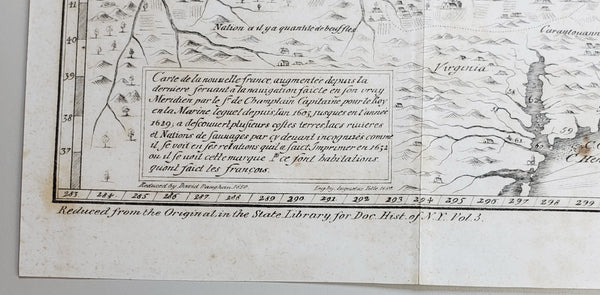 Nation ou il y a quantité de beuffles
Caraytouann
Virginia
41
40
39
38
37
Carte de la nouuelle france, augmentée depuis la
derniere, seruant a la nauigation faicte en son vray
Meridien par le Sr de Champlain Capitaine pour le Roy
en la Marine lequel depuis l'an 1603 jusques en l'année
1629; a descouuert plusieurs costes terres, lacs, riuieres
et Nations de sauuages par cy deuant incognues comme
il se voit en ses relations qu'il a faict Imprimer en 1632
ou il se voit cette marque ce sont habitations
qu'ont faict les françois.
Reduced by David Vaughan 1850.
Eng. by Augustus
59
283 284 285 286 287 288 289 290 291 292 293 294 295 296 297 298 299
Reduced from the Original, in the State Library, for Doc. Hist. of N.Y. Vol. 3.